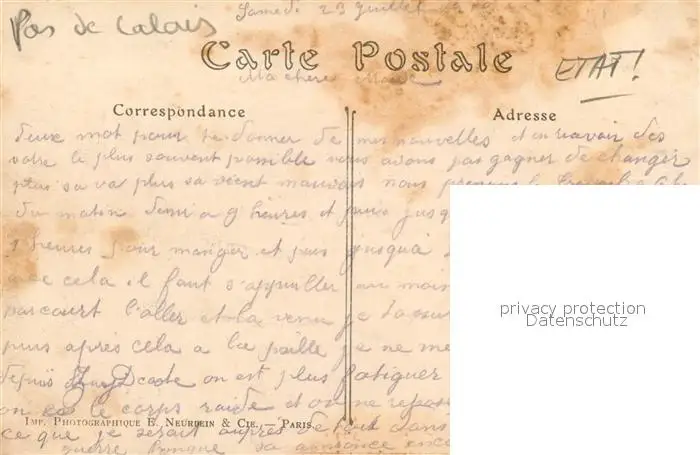 Samedi 23 juillet
Pas de Calais
Carte Postale
ETAT!
Ma chère
Correspondance
Adresse
deux mot pour te donner de mes nouvelles et en ravoir des
votre le plus souvent possible nous avons pas gagner de changer
plus sa va plus sa vient mauvais nous prenons le
du matin demi a 9 heures et puis jusqu
1 heures pour manger et puis jusqua
avec cela il faut s'appuiller au moin
parcourt l'aller et la venu je t'assur
puis après cela a la paille je ne me
depuis on est plus fatiguer
on a le corps raide et on ne repose
IMP. PHOTOGRAPHIQUE E. NEURDEIN & CIE. — PARIS.
ce que je serait auprès de toi dans
guerre sa
privacy protection
Datenschutz